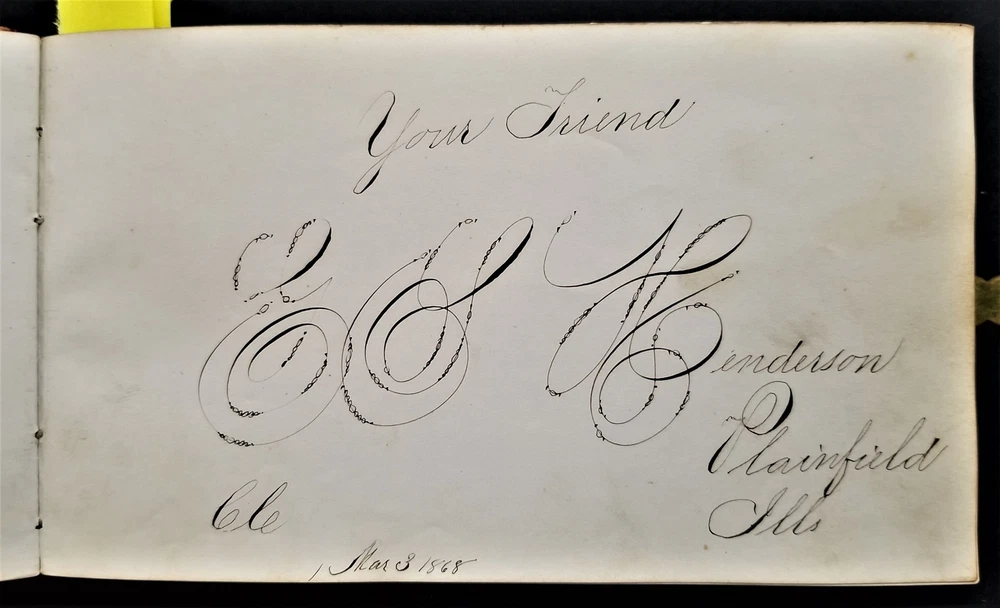 Your Friend
E S Henderson
Plainfield
Ills
Mar 3 1868